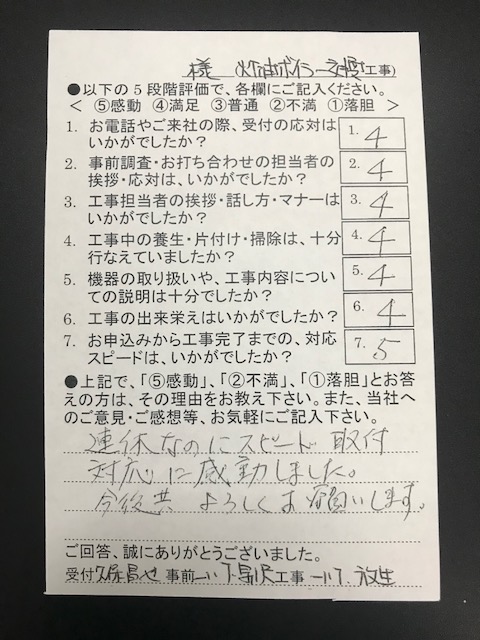 様 (灯油ボイラー交換工事)
●以下の5段階評価で、各欄にご記入ください。
< ⑤感動 ④満足 ③普通 ②不満 ①落胆 >
1. お電話やご来社の際、受付の応対は
いかがでしたか?
1. 4
2. 事前調査・お打ち合わせの担当者の
挨拶・応対は、いかがでしたか?
2. 4
3. 工事担当者の挨拶・話し方・マナーは
いかがでしたか?
3. 4
4. 工事中の養生・片付け・掃除は、十分
行なえていましたか?
4. 4
5. 機器の取り扱いや、工事内容につい
ての説明は十分でしたか?
5. 4
6. 工事の出来栄えはいかがでしたか?
6. 4
7. お申込みから工事完了までの、対応
スピードは、いかがでしたか?
7. 5
●上記で、「⑤感動」、「②不満」、「①落胆」とお答
えの方は、その理由をお教え下さい。また、当社へ
のご意見・ご感想等、お気軽にご記入下さい。
連休なのにスピード取付
対応に感動しました。
今後共よろしくお願いします。
ご回答、誠にありがとうございました。
受付 事前 工事